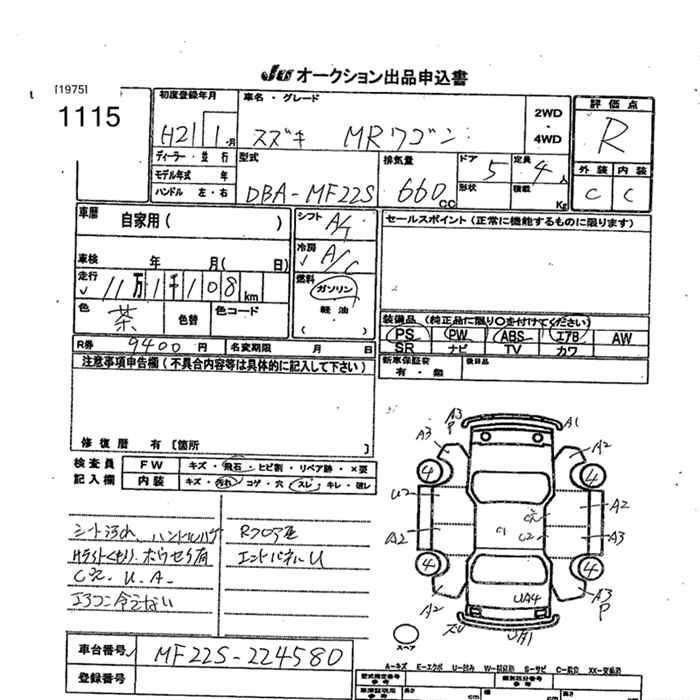 JU オークション出品申込書
[1975]
1115
初度登録年月
H21 1 月
車名・グレード
スズキ MRワゴン
2WD
・
4WD
評価点
R
外装 内装
C C
ディーラー・並行
モデル年式 年
ハンドル 左・右
型式
DBA-MF22S
排気量
660 CC
ドア 5
形状
定員 4 人
積載 Kg
車歴
自家用( )
車検 年 月( 日)
走行
11万1千108 km
色 茶
色替
色コード
シフト A/T
冷房 A/C
燃料
ガソリン
軽油
( )
セールスポイント(正常に機能するものに限ります)
装備品(純正品に限り○を付けてください)
PS PW ABS エアB AW
SR ナビ TV カワ
新車保証書
有・無
後日品
R券 9400 円
名変期限 月 日
注意事項申告欄(不具合内容等は具体的に記入して下さい)
修復歴 有〔箇所 〕
検査員
記入欄
FW キズ・飛石・ヒビ割・リペア跡・×要
内装 キズ・汚れ・コゲ・穴・スレ・キレ・破レ
シート汚れ
Rフロア歪
エンドパネルU
U. A.
エアコン冷えない
A3
P
A1
A3
A2
4
4
U2
A2
C1
C2
A2
A3
4
4
A2
UA4
A3
P
スペア
車台番号 MF22S-224580
登録番号
A-キズ E-エクボ U-凹み S-サビ